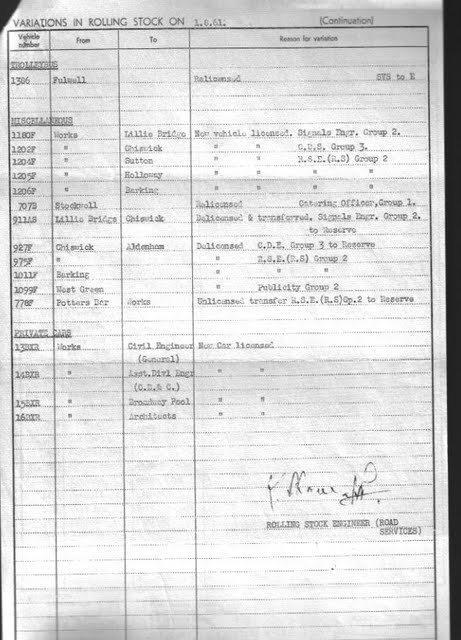 VARIATIONS IN ROLLING STOCK ON 1.8.61. (Continuation)
Vehicle number From To Reason for variation
TROLLEYBUS
1386 Fulwell Relicensed SVS to E
MISCELLANEOUS
1180F Works Lillie Bridge New vehicle licensed. Signals Engr. Group 2.
1202F " Chiswick " " C.D.S. Group 3.
1204F " Sutton " " R.S.E.(R.S) Group 2
1205F " Holloway " " " "
1206F " Barking " " " "
707S Stockwell Relicensed Catering Officer, Group 1.
911AS Lillie Bridge Chiswick Delicensed & transferred. Signals Engr. Group 2.
to Reserve
927F Chiswick Aldenham Delicensed C.D.E. Group 3 to Reserve
975F " " R.S.E.(RS) Group 2
1011F Barking " " "
1099F West Green " Publicity Group 2
778F Potters Bar Works Unlicensed transfer R.S.E.(RS)Gp.2 to Reserve
PRIVATE CARS
13BXR Works Civil Engineer New Car licensed
(General)
14BXR " Asst.Divl Engr " "
(C.D.& C.)
15BXR " Broadway Pool " "
16BXR " Architects " "
ROLLING STOCK ENGINEER (ROAD
SERVICES)